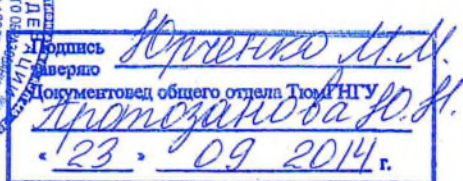 Подпись Юрченко М.М.
заверяю
Документовед общего отдела ТюмГНГУ
Протозанова Ю.Н.
« 23 » 09 2014 г.